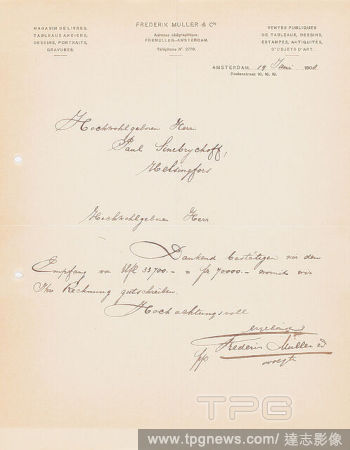 MAGASIN DE LIVRES,
TABLEAUX ANCIENS,
DESSINS, PORTRAITS,
GRAVURES.
FREDERIK MULLER & Cie
Adresse télégraphique:
FREMULLER-AMSTERDAM.
Téléphone No. 2779.
VENTES PUBLIQUES
DE TABLEAUX, DESSINS,
ESTAMPES, ANTIQUITÉS,
D'OBJETS D'ART.
AMSTERDAM, 19 Juni 1908
Doelenstraat 10,
Hochwohlgeboren Herr
Paul Sinebrychoff,
Helsingfors
Hochwohlgeboren Herr
Dankend bestätigen wir den
Empfang von Hfl 33,700.- = 70000.- womit wir
Ihre Rechnung gutschreiben.
Hochachtungsvoll
ergebenst
pp Frederik Muller & Co
TPG
www.tpgnews.com/ 達志影像